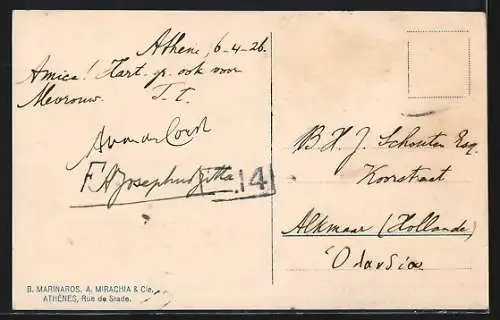 Athene, 6-4-26.
Amice! Hart. gr. ook voor
Mevrouw. T. t.
F. A. Josephus Jitta
14
B. H. J. Schouten Esq.
Koorstraat
Alkmaar (Hollande)
B. MARINAROS, A. MIRACHIA & Cie,
ATHÈNES, Rue de Stade.